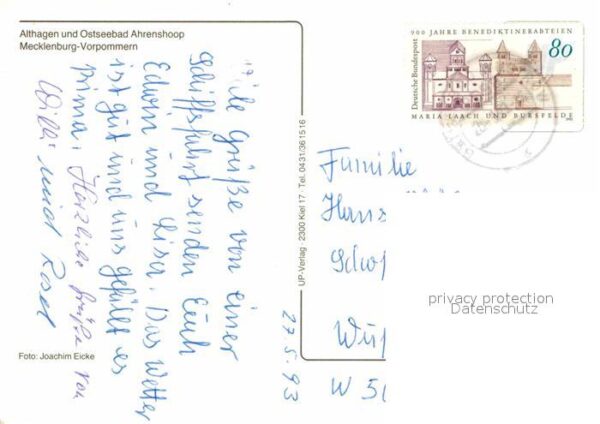 Althagen und Ostseebad Ahrenshoop
Mecklenburg-Vorpommern
Viele Grüße von einer
Schiffsfahrt senden Euch
Edwin und Lisa. Das Wetter
ist gut und uns gefällt es
prima. Herzliche Grüße von
Willi und Rosel
27.5.93
Foto: Joachim Eicke
UP-Verlag · 2300 Kiel 17 · Tel. 0431/361516
900 JAHRE BENEDIKTINERABTEIEN
80
Deutsche Bundespost
MARIA LAACH UND BURSFELDE
Familie
Hans
Wup
W 50
privacy protection
Datenschutz